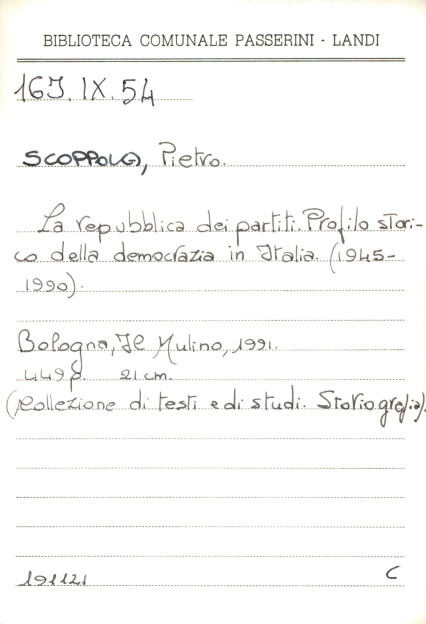 BIBLIOTECA COMUNALE PASSERINI - LANDI
16J. IX. 54
SCOPPOLA, Pietro.
La repubblica dei partiti. Profilo stori-
co della democrazia in Italia. (1945-
1990).
Bologna, Il Mulino, 1991.
449 p. 21 cm.
(Collezione di testi e di studi. Storiografia).
191121 C